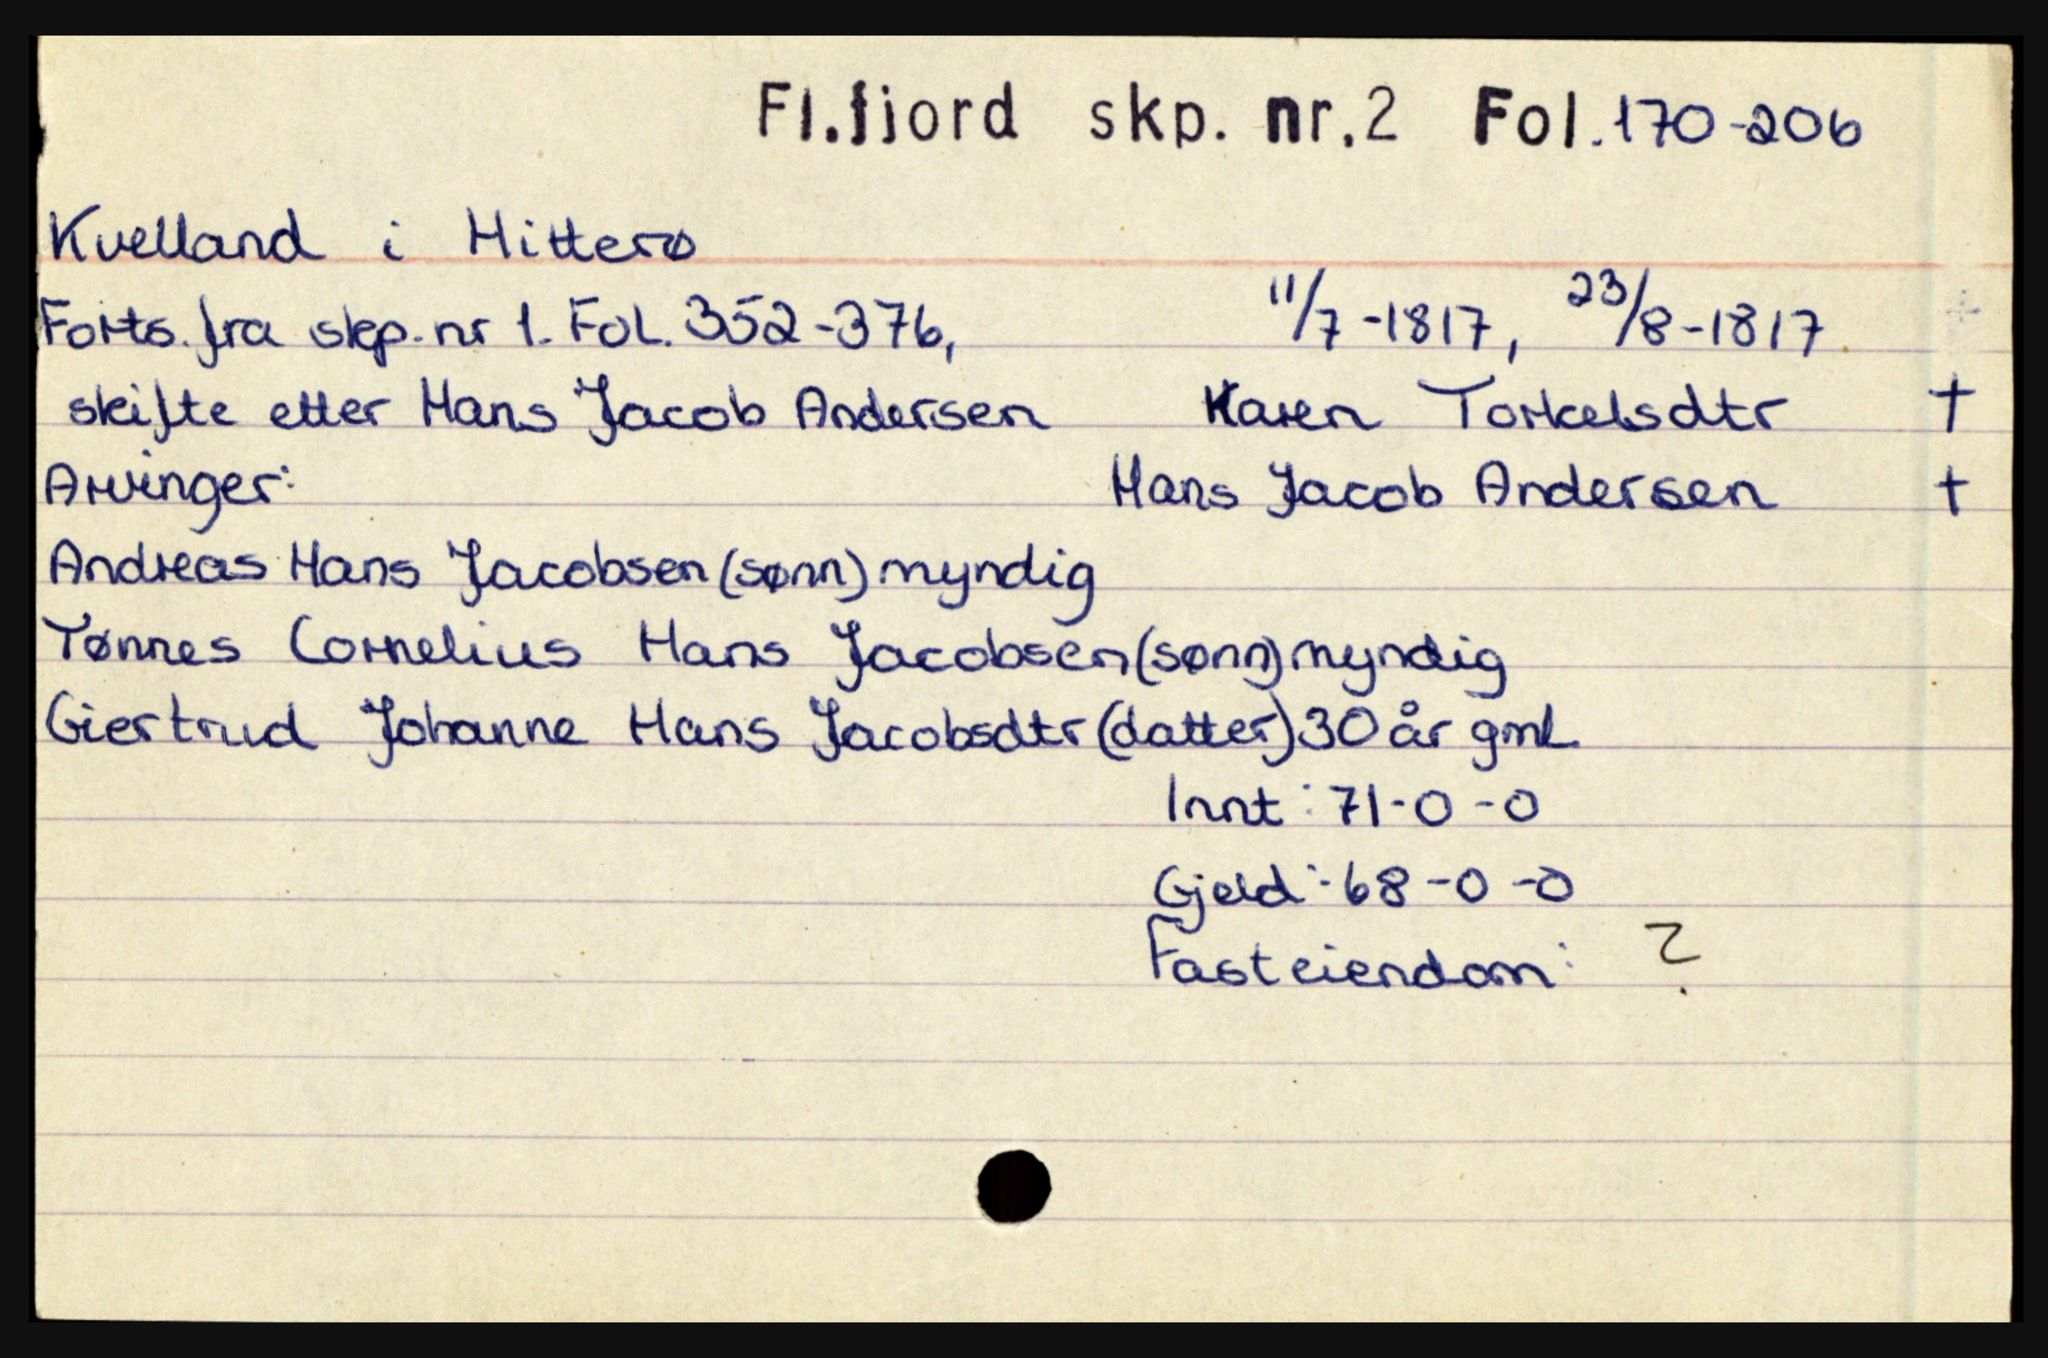 Fl.fjord skp. nr.2 Fol.170-206
Kvelland i Hitterø
Forts. fra skp. nr 1. Fol. 352-376, 11/7-1817, 23/8-1817.
skifte etter Hans Jacob Andersen Karen Torkelsdtr †
Arvinger: Hans Jacob Andersen †
Andreas Hans Jacobsen (sønn) myndig
Tønnes Cornelius Hans Jacobsen (sønn) myndig
Giertrud Johanne Hans Jacobsdtr (datter) 30 år gml.
Innt: 71-0-0
Gjeld: 68-0-0
Fasteiendom: ?